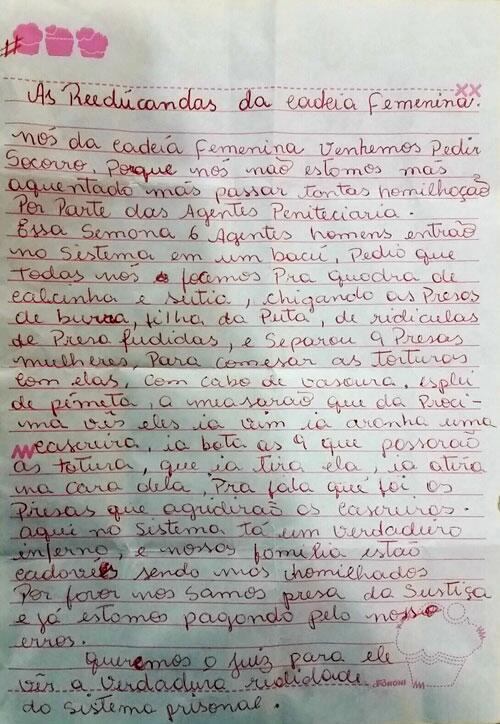 #
XX
As Reedúcandas da cadeia Femenina.
nós da cadeia Femenina venhemos Pedir
Socorro, Porque nós não estomos más
aquentado más passar tontas homilhoção
Por Parte das Agentes Peniteciaria.
Essa Semona 6 Agentes homens entrão
no Sistema em um bacú, Pedio que
todas nós focemos Pra quadra de
calcinha e sutiã, chigando as Presas
de burra, filha da Puta, de ridículas
de Presa fudidas, e Separou 9 Presas
mulheres, Para comesar as torturas
com elas, com cabo de vasoura, esplei
de pimeta, a measarão que da Proci-
ma vês eles ia vim ia aranha uma
caserira, ia bota as 9 que possorão
as totura, que ia tira ela, ia atira
na cara dela, Pra fala que foi as
Presas que agrederão as caseriras.
aqui no Sistema tá um verdadero
inferno, e nossos fomilia estão
cadoveis sendo más homilhados
Por foror nos Samos presa da Sustiça
e já estomos pagondo pelo nosso
erros.
Queremos o juiz para ele
vêr a verdadera rididade
do sistema prisonal.
FORONI